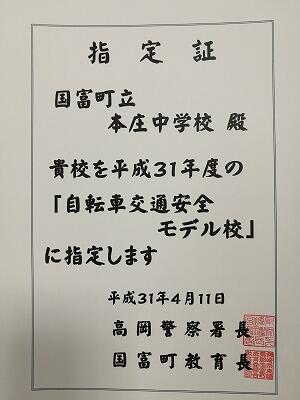 指定証
国富町立
本庄中学校 殿
貴校を平成31年度の
「自転車交通安全
モデル校」
に指定します
平成31年4月11日
高岡警察署長
国富町教育長